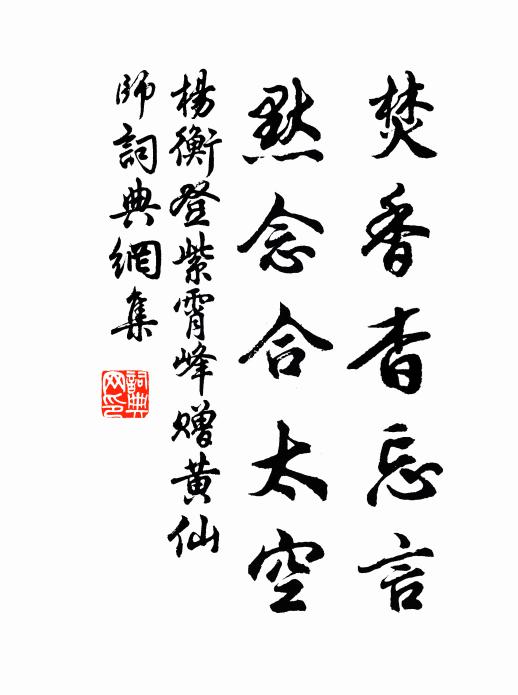 焚香杳忘言
默念合太空
楊衡登紫霄峰赠黄仙
師詞典網集
詞典
网印